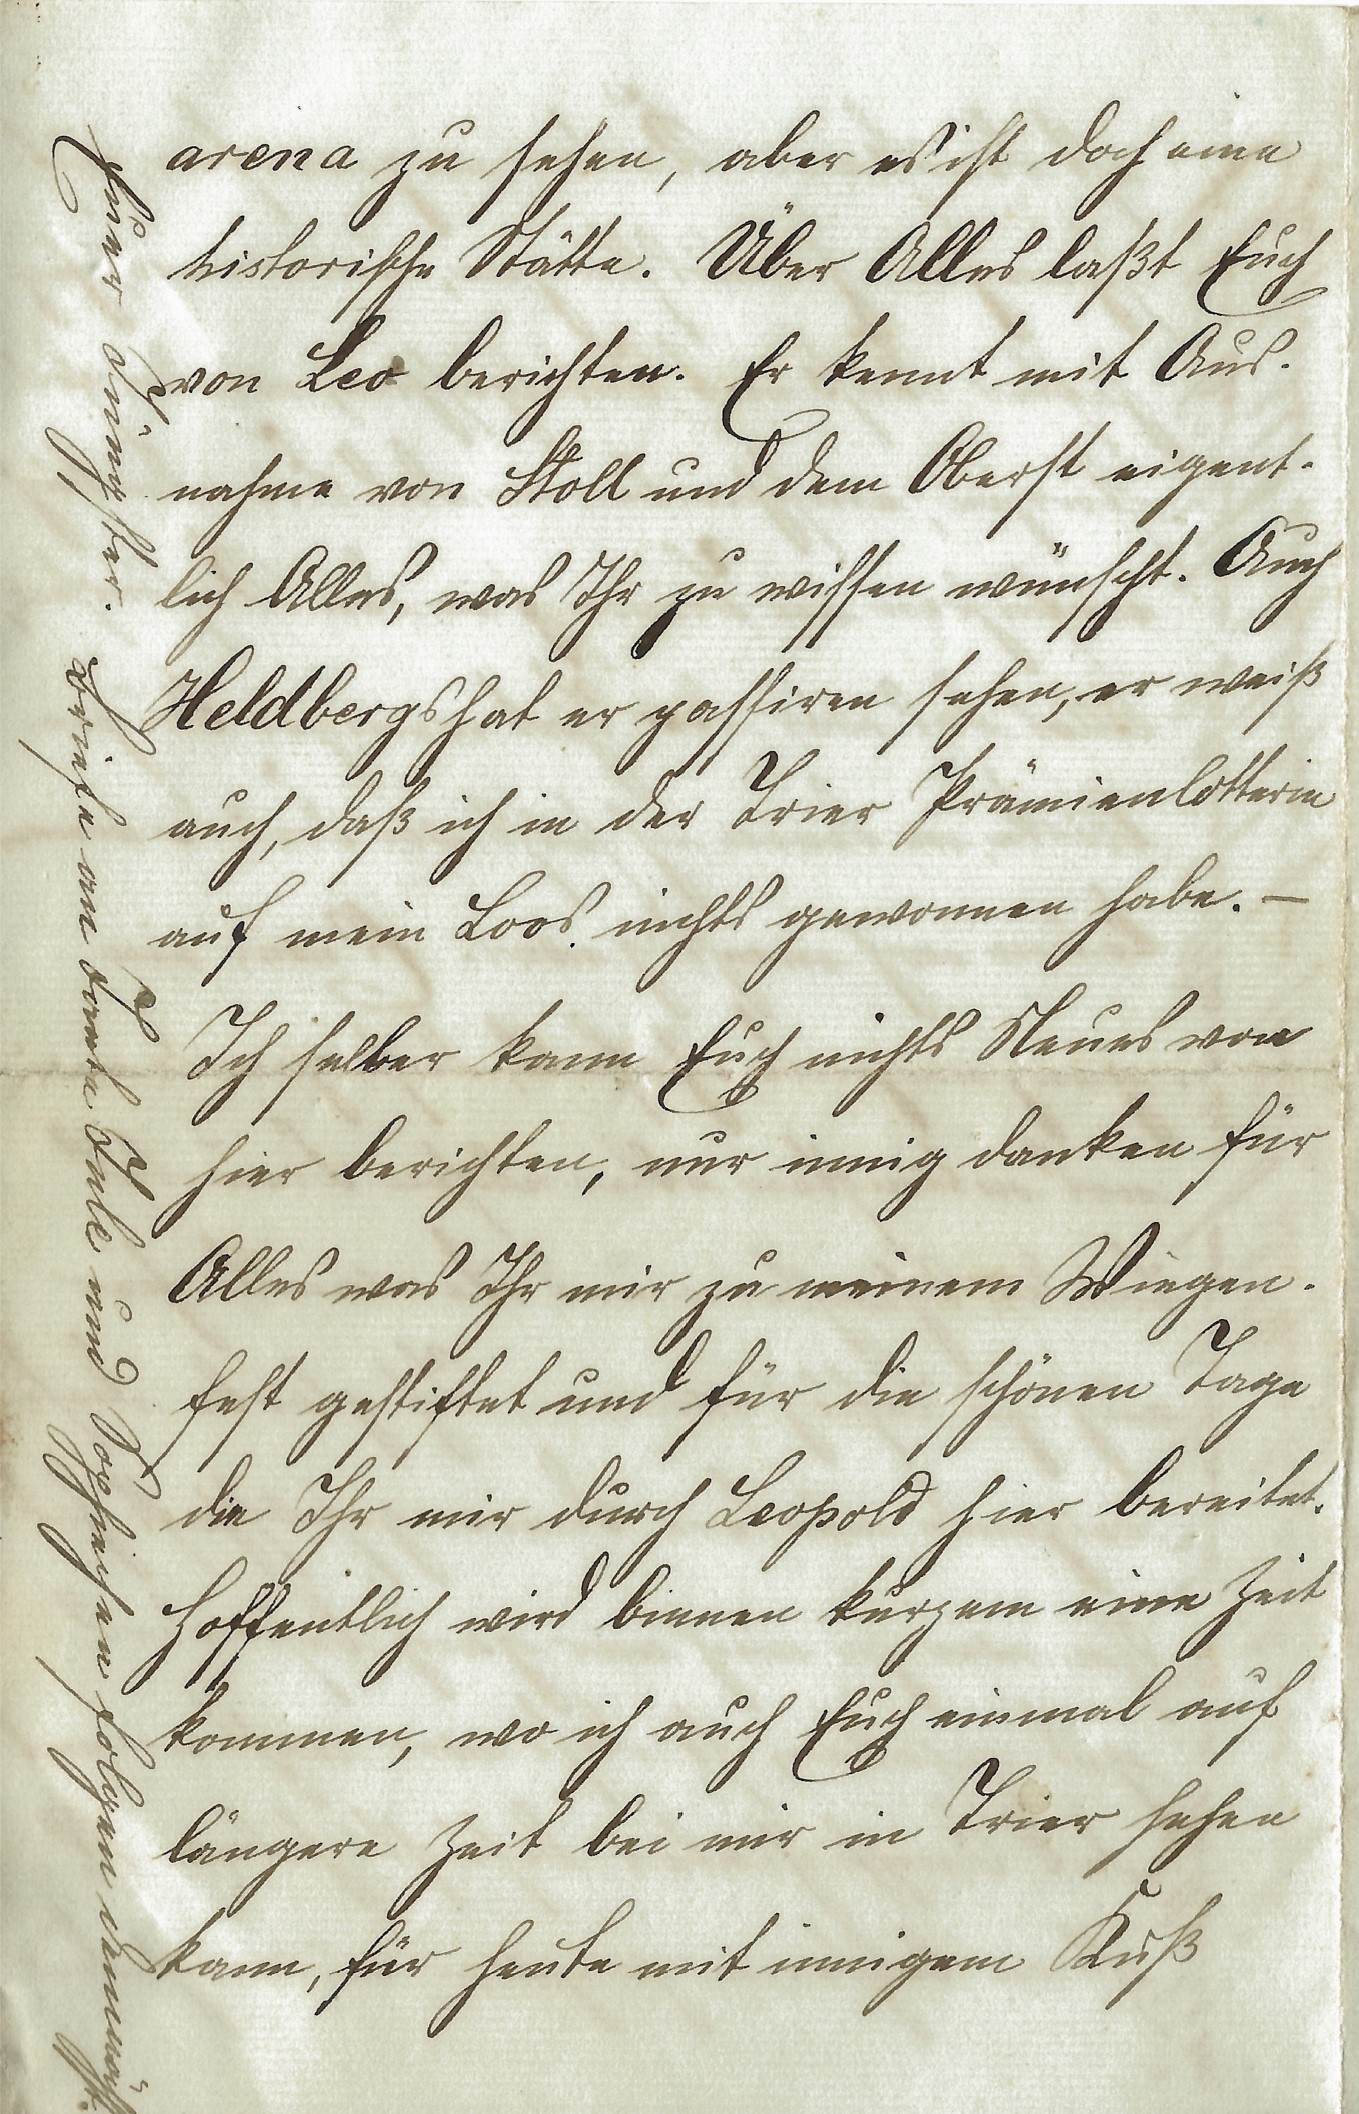 arena zu sehen, aber es ist doch eine
historische Stätte. Über Alles laßt Euch
von Leo berichten. Er kennt mit Aus-
nahme von Stoll und dem Oberst eigent-
lich Alles, was Ihr zu wissen wünscht. Auch
Heldbergs hat er passiren sehen, er weiß
auch, daß ich in der Trier Prämienlotterie
auf mein Loos nichts gewonnen habe. —
Ich selber kann Euch nichts Neues von
hier berichten, nur innig danken für
Alles was Ihr mir zu meinem Wiegen-
fest gestiftet und für die schönen Tage
die Ihr mir durch Leopold hier bereitet.
Hoffentlich wird binnen kurzem eine Zeit
kommen, wo ich auch Euch einmal auf
längere Zeit bei mir in Trier sehen
kann, für heute mit innigem Kuß
Euer Jüngster.
Briefe an Tante Jule und Sophiechen folgen demnächst.